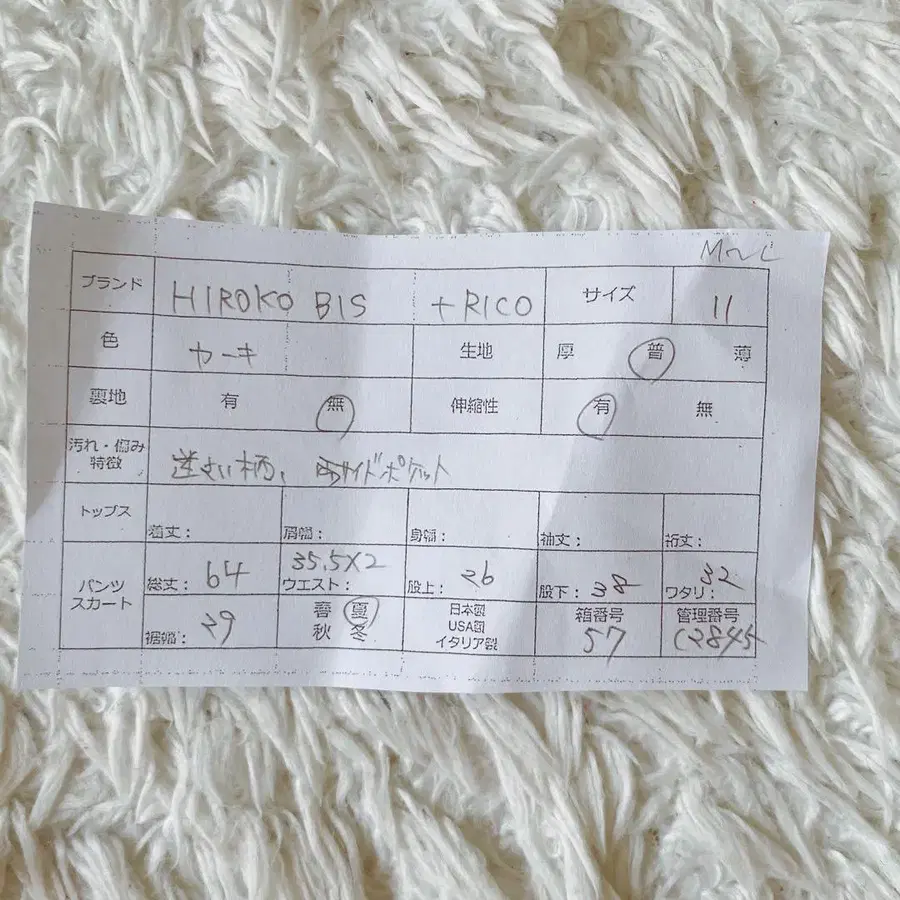 M〜L
ブランド HIROKO BIS +RICO サイズ 11
色 カーキ 生地 厚 普 薄
裏地 有 無 伸縮性 有 無
汚れ・傷み
特徴 迷さい柄、両サイドポケット
トップス 着丈: 肩幅: 身幅: 袖丈: 裄丈:
パンツ
スカート 総丈: 64 35.5×2 ウエスト: 股上: 26 股下: 38 32 ワタリ:
裾幅: 29 春 夏 秋 冬 日本製 USA製 イタリア製 箱番号 57 管理番号 C2845